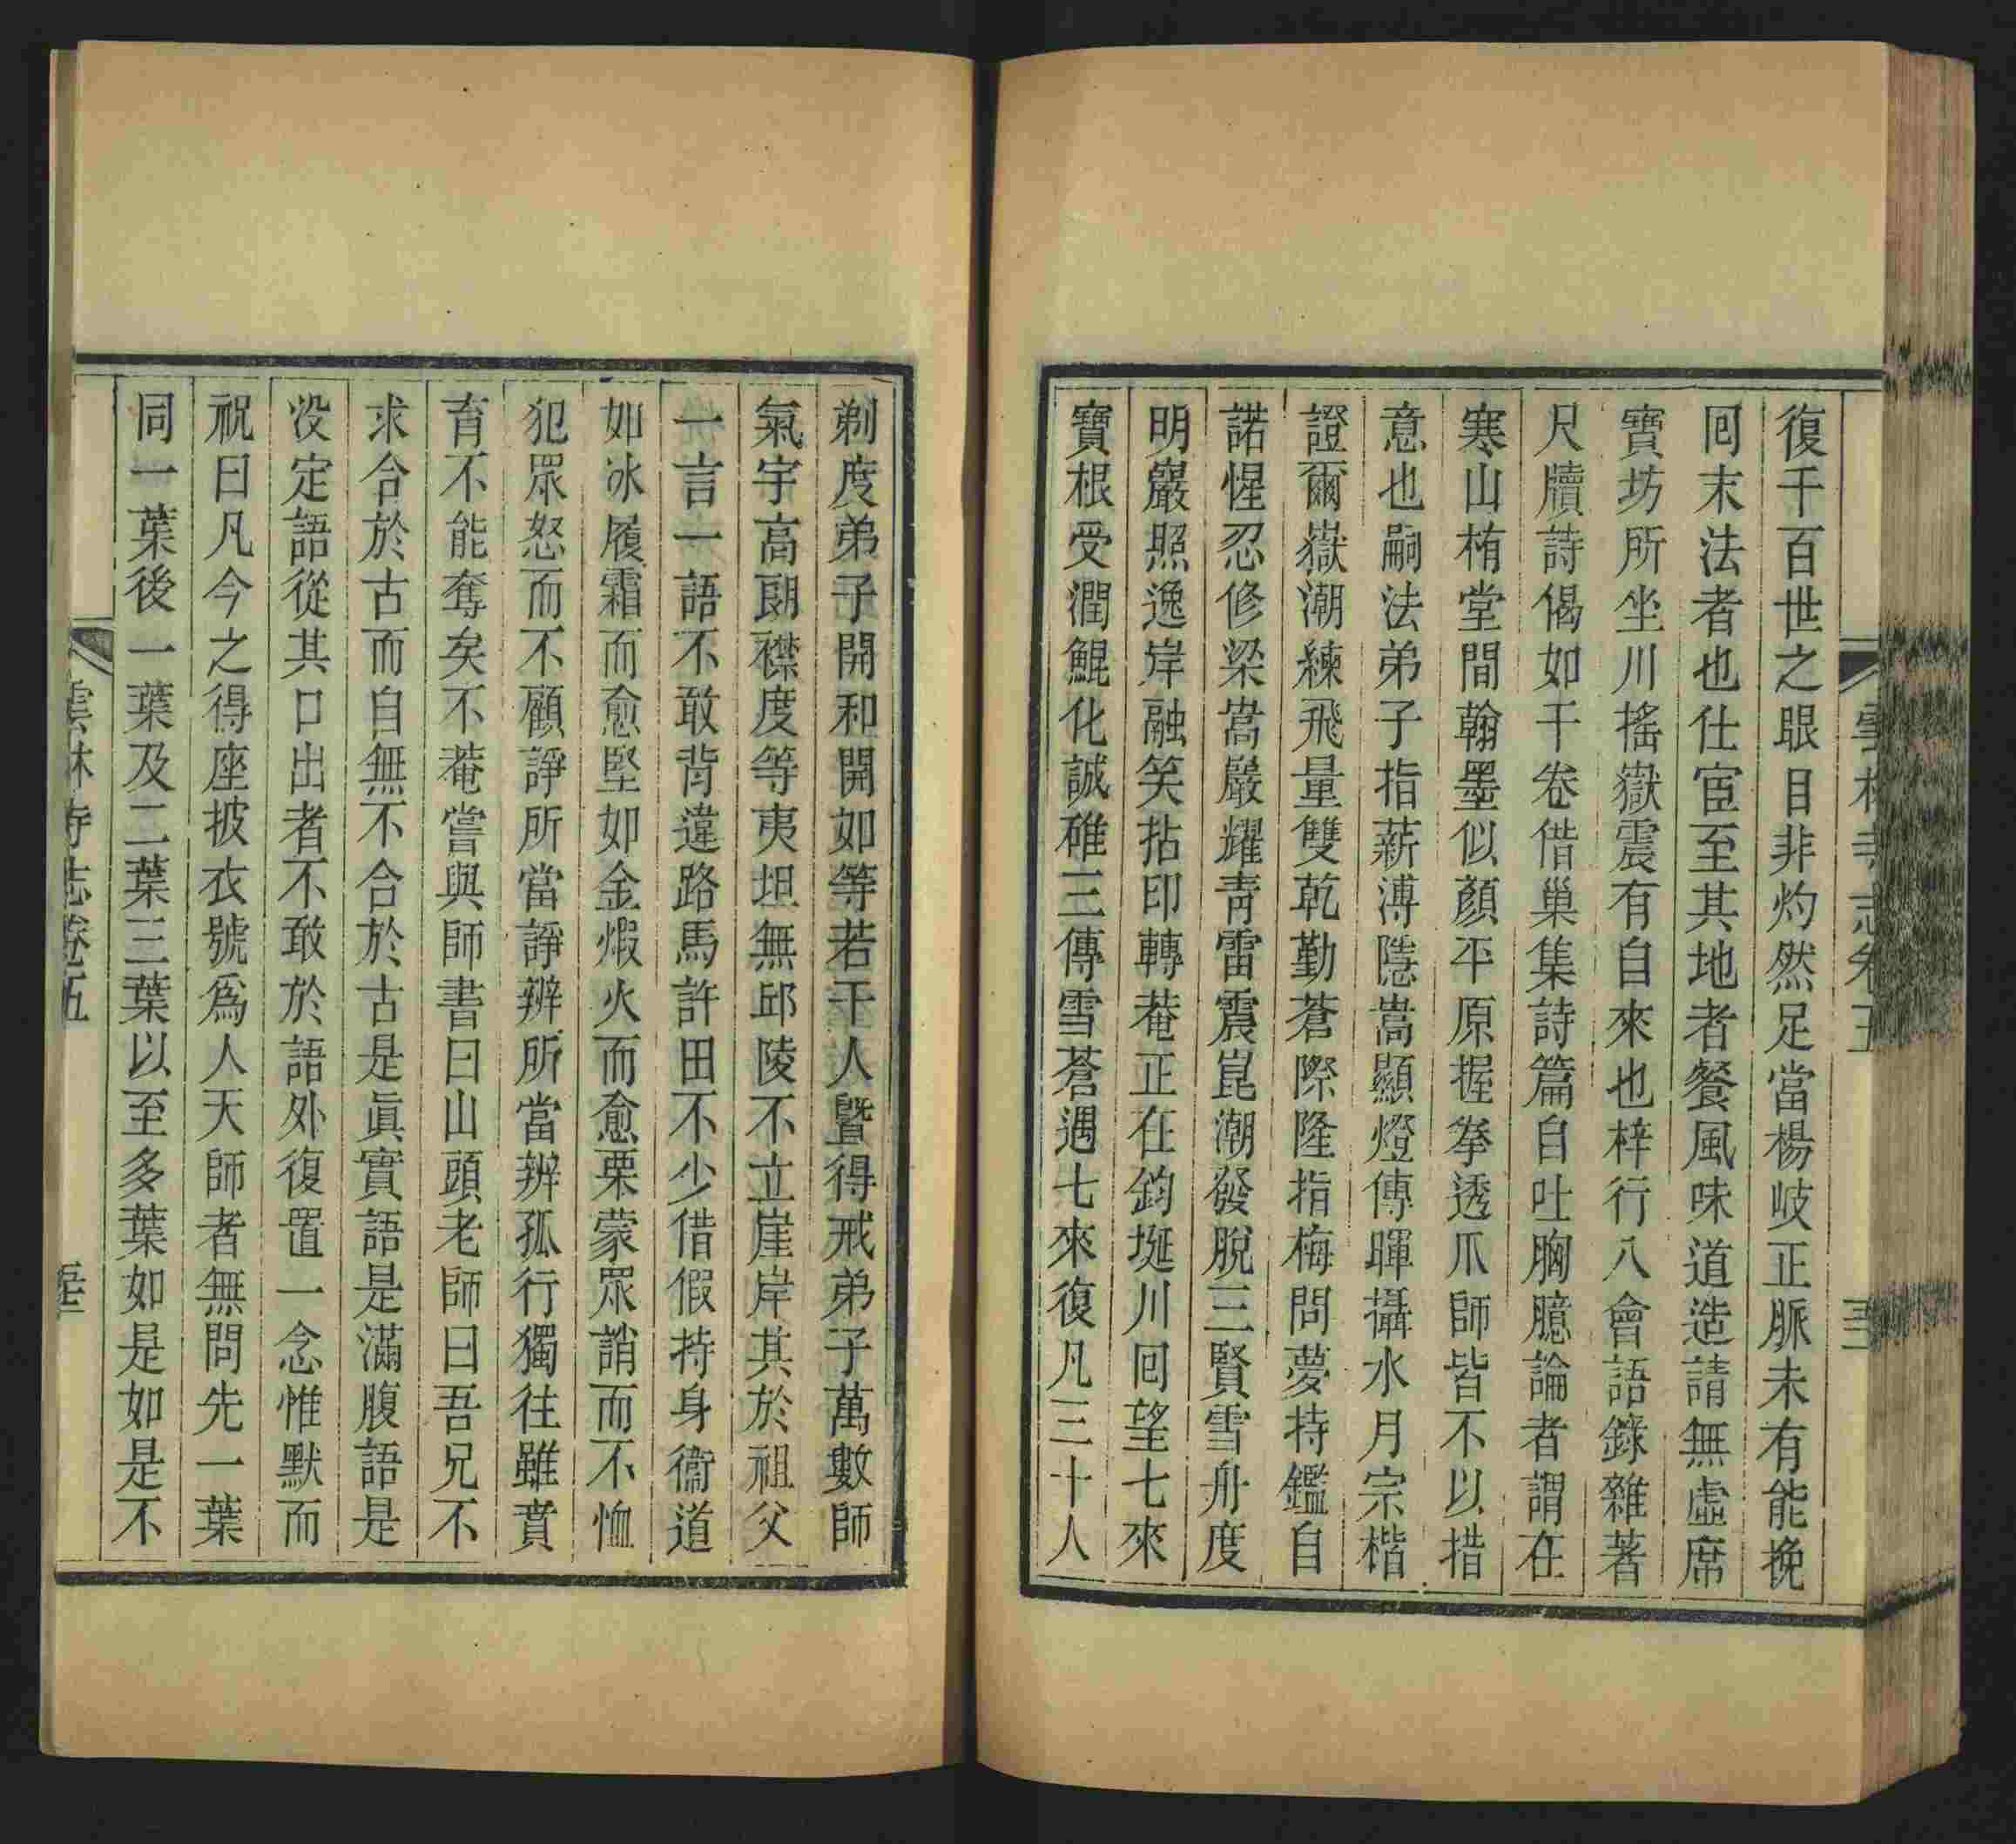 復千百世之眼目非灼然足當楊岐正脈未有能挽
囘末法者也仕宦至其地者餐風味道造請無虛席
寶坊所坐川搖嶽震有自來也梓行八會語錄雜著
尺牘詩偈如干卷借巢集詩篇自吐胸臆論者謂在
寒山栯堂間翰墨似顏平原握拳透爪師皆不以措
意也嗣法弟子指薪溥隱嵩顯燈傳暉攝水月宗楷
證爾嶽潮練飛量雙乾勤蒼際隆指梅問夢持鑑自
諾惺忍修梁嵩巖耀青雷震崑潮發脫三賢雪舟度
明巖照逸岸融笑拈印轉菴正在鈞埏川囘望七來
寶根受潤鯤化誠碓三傳雪蒼遇七來復凡三十人
剃度弟子開和開如等若干人曁得戒弟子萬數師
氣宇高朗襟度等夷坦無邱陵不立崖岸其於祖父
一言一語不敢背違路馬許田不少借假持身衞道
如冰履霜而愈堅如金煆火而愈栗蒙眾誚而不恤
犯眾怒而不顧諍所當諍辨所當辨孤行獨往雖賁
育不能奪矣不菴嘗與師書曰山頭老師曰吾兄不
求合於古而自無不合於古是眞實語是滿腹語是
沒定語從其口出者不敢於語外復置一念惟默而
祝曰凡今之得座披衣號爲人天師者無問先一葉
同一葉後一葉及二葉三葉以至多葉如是如是不
雲林寺志卷五